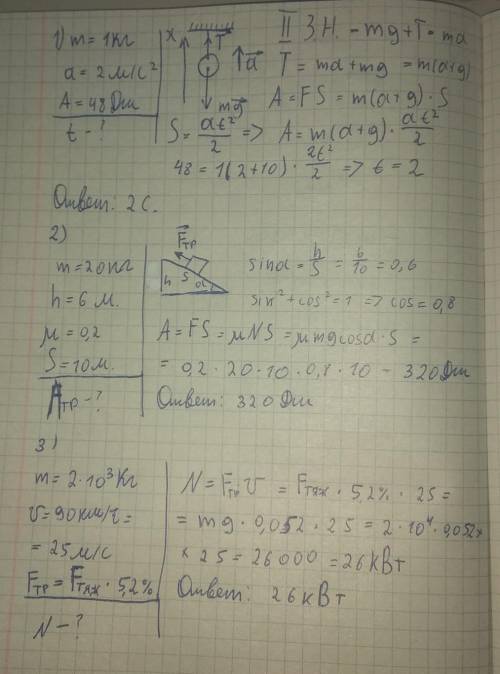 √ m = 1кг
a = 2 м/с²
A = 48 Дж
t - ?
x T a mg
II З.Н. - mg + T = ma
T = ma + mg = m(a+g)
A = FS = m(a+g) · S
S = at²/2 => A = m(a+g) · at²/2
48 = 1(2+10) · 2t²/2 => t = 2
Ответ: 2 с.
2)
m = 20 кг
h = 6 м.
μ = 0,2
S = 10 м.
Aтр - ?
Fтр h S α
sinα = h/S = 6/10 = 0,6
sin² + cos² = 1 => cos = 0,8
A = FS = μNS = μmgcosα · S =
= 0,2 · 20 · 10 · 0,8 · 10 = 320 Дж
Ответ: 320 Дж
3)
m = 2 · 10³ кг
v = 90 км/ч =
= 25 м/с
Fтр = Fтяж · 5,2%
N - ?
N = Fтр v = Fтяж · 5,2% · 25 =
= mg · 0,052 · 25 = 2 · 10⁴ · 0,052 ×
× 25 = 26000 = 26 кВт
Ответ: 26 кВт